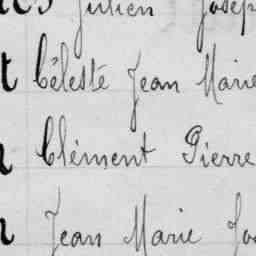 Julien Josep
t Céleste Jean Marie
Clément Pierre
Jean Marie Jos